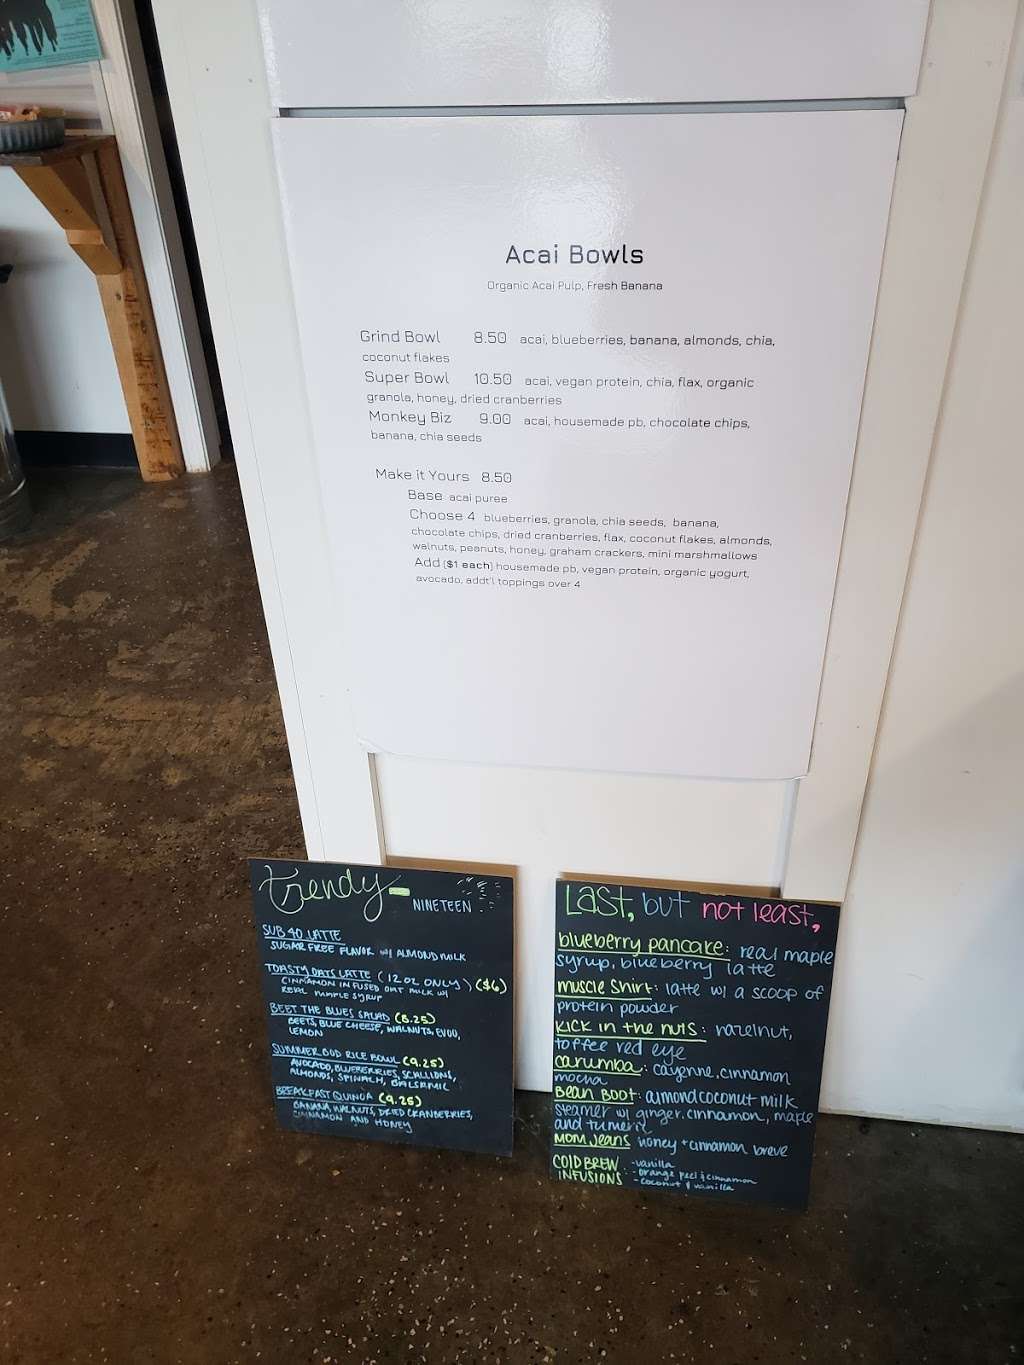 Acai Bowls
Organic Acai Pulp, Fresh Banana
Grind Bowl 8.50 acai, blueberries, banana, almonds, chia,
coconut flakes
Super Bowl 10.50 acai, vegan protein, chia, flax, organic
granola, honey, dried cranberries
Monkey Biz 9.00 acai, housemade pb, chocolate chips,
banana, chia seeds
Make it Yours 8.50
Base acai puree
Choose 4 blueberries, granola, chia seeds, banana,
chocolate chips, dried cranberries, flax, coconut flakes, almonds,
walnuts, peanuts, honey, graham crackers, mini marshmallows
Add ($1 each) housemade pb, vegan protein, organic yogurt,
avocado, addt'l toppings over 4
trendy
NINETEEN
SUB 40 LATTE
SUGAR FREE FLAVOR W/ ALMOND MILK
TOASTY OATS LATTE (12 OZ ONLY) ($6)
CINNAMON INFUSED OAT MILK W/
REAL MAPLE SYRUP
BEET THE BLUES SALAD (8.25)
BEETS, BLUE CHEESE, WALNUTS, EVOO,
LEMON
SUMMER BOD RICE BOWL (9.25)
AVOCADO, BLUEBERRIES, SCALLIONS,
ALMONDS, SPINACH, BALSAMIC
BREAKFAST QUINOA (9.25)
BANANA, WALNUTS, DRIED CRANBERRIES,
CINNAMON AND HONEY
Last, but not least,
blueberry pancake: real maple
syrup, blueberry latte
muscle shirt: latte w/ a scoop of
protein powder
kick in the nuts: hazelnut,
toffee red eye
carumba: cayenne, cinnamon
mocha
Bean Boot: almond coconut milk
steamer w/ ginger, cinnamon, maple
and tumeric
MOM JEANS honey + cinnamon breve
COLD BREW -vanilla
INFUSIONS: -orange peel & cinnamon
-coconut & vanilla